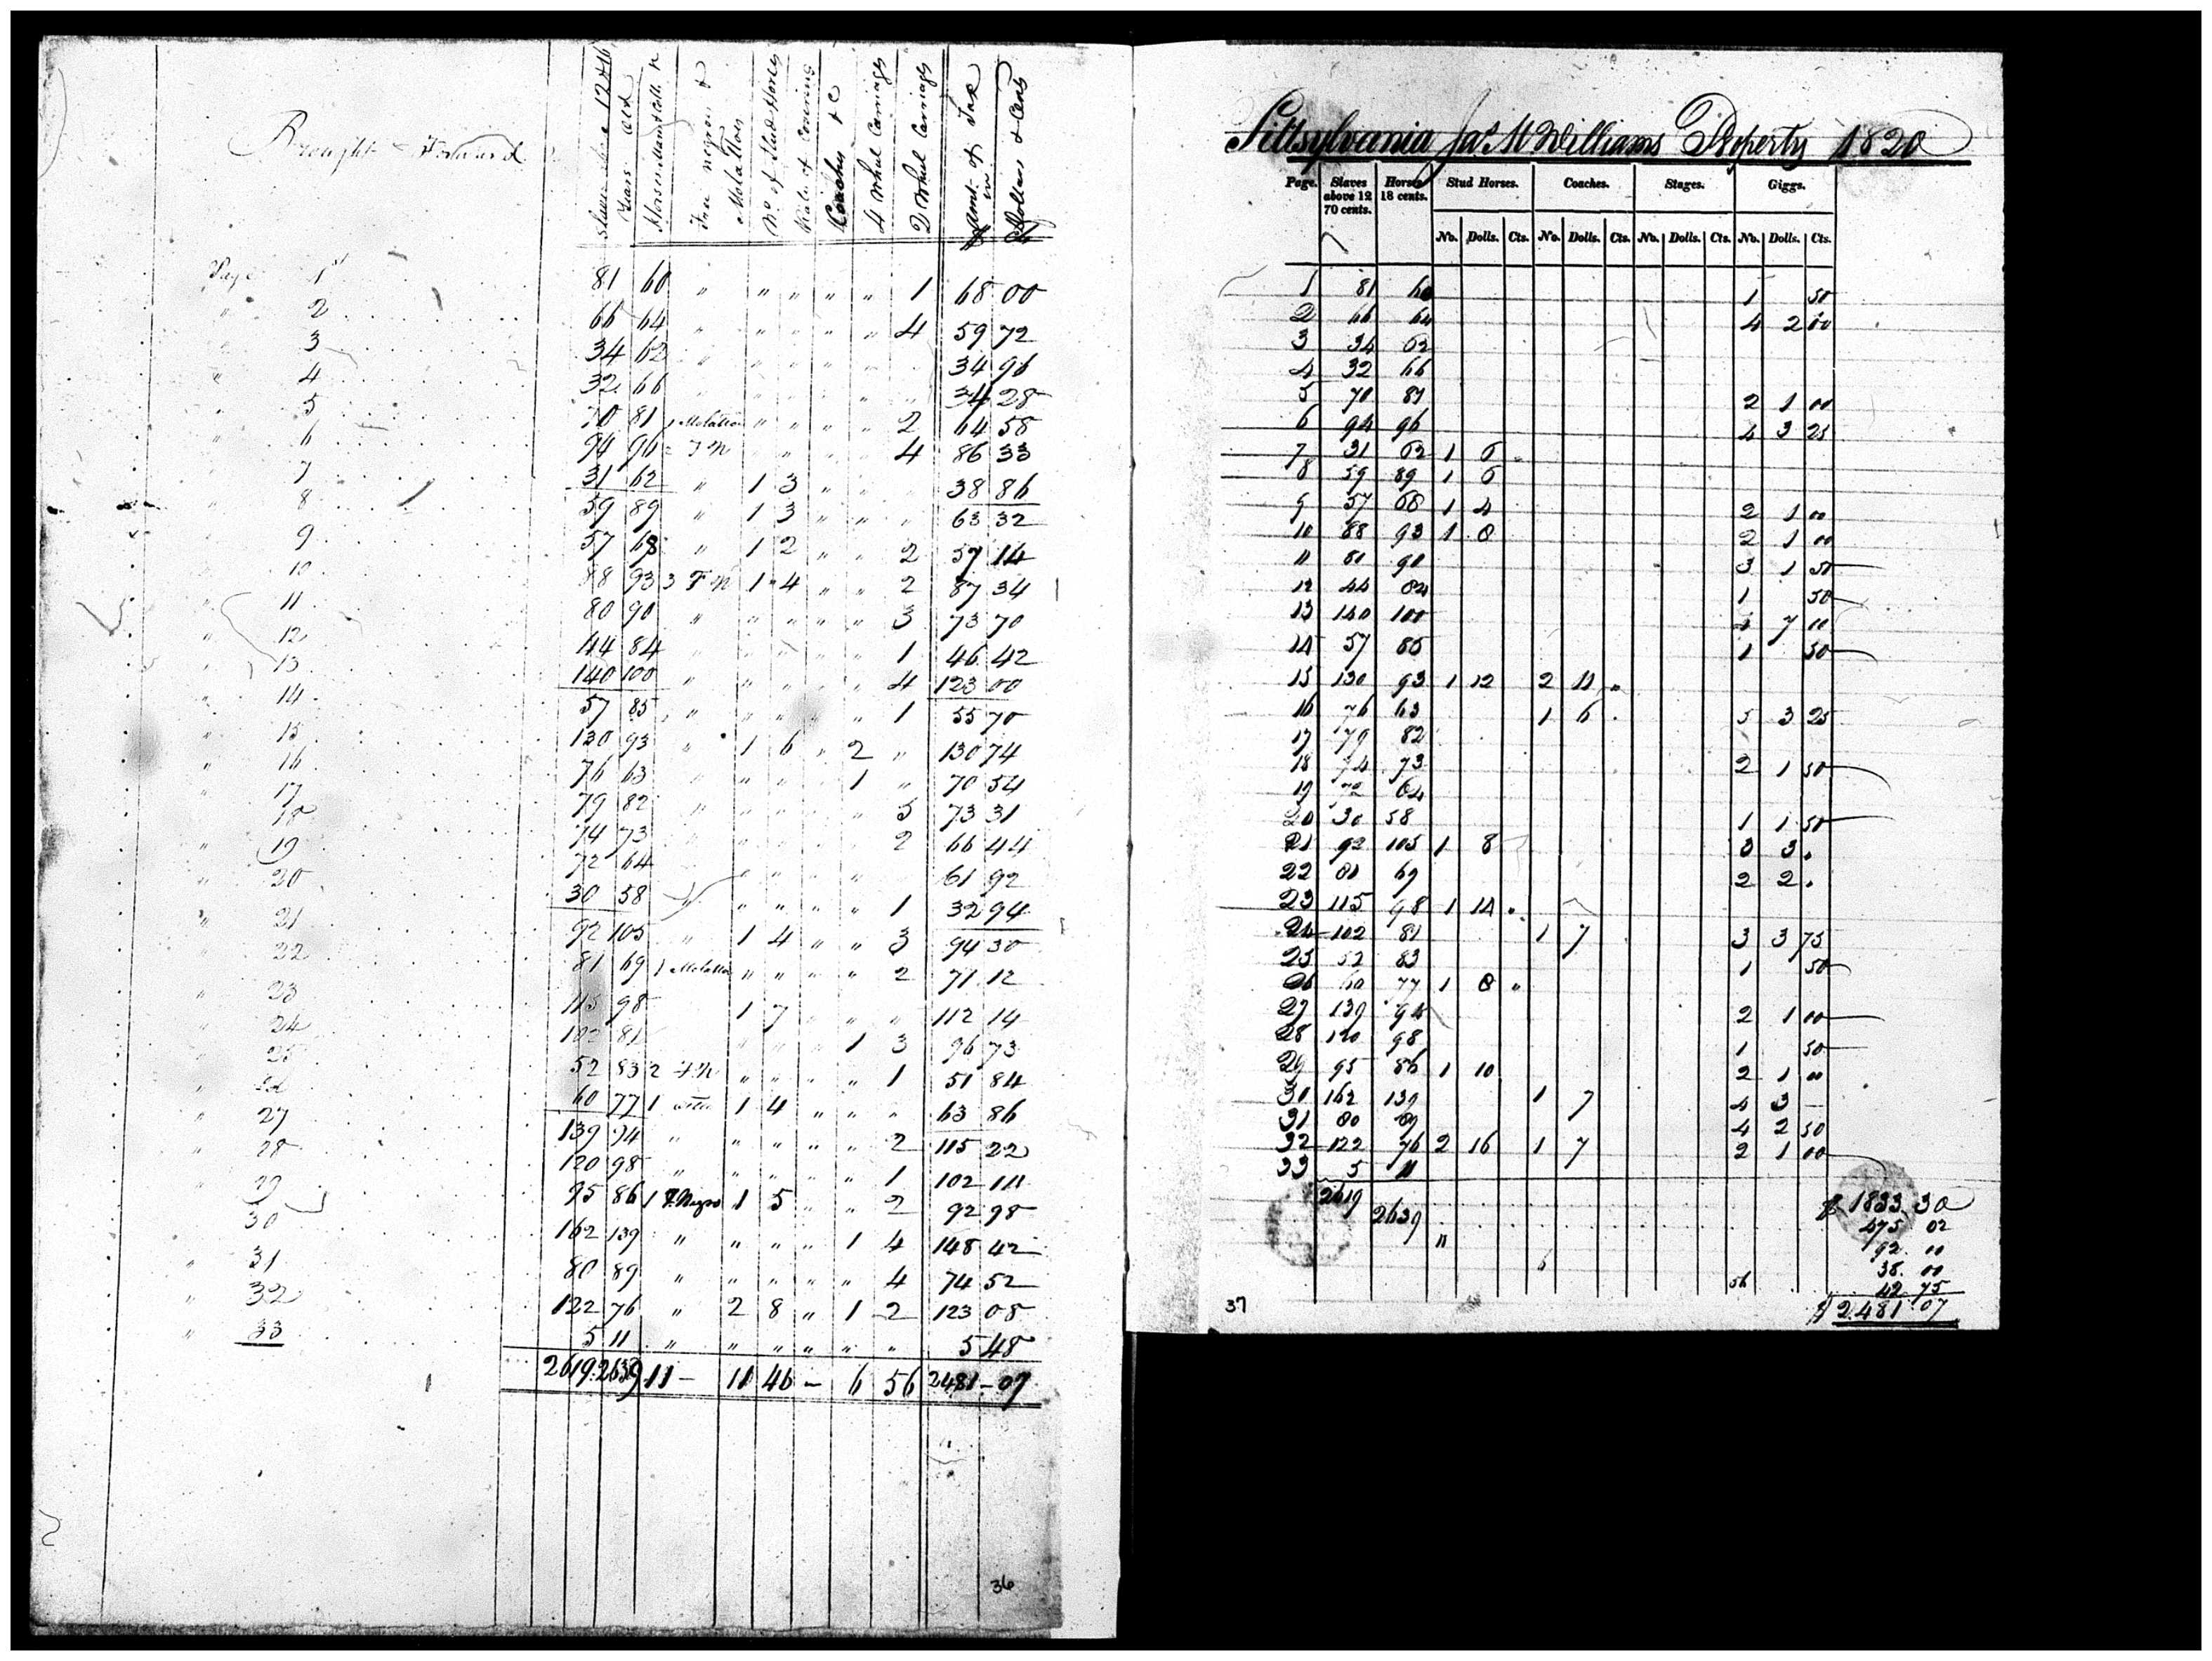 Brought Forward
Slaves above 12 & 16 years old
Horses Mares & Colts
Free negroes & Molattoes
No. of Stud Horses
Rate of Covering
Coaches & C
4 Wheel Carriages
2 Wheel Carriages
Amt. of Tax in Dollars & Cents
Page 1st 81 60 " " " " " 1 68 00
" 2 66 64 " " " " " 4 59 72
" 3 34 62 " " " " " " 34 96
" 4 32 66 " " " " " " 34 28
" 5 70 81 1 Molattoe " " " " 2 64 58
" 6 94 96 " F N " " " " 4 86 33
" 7 31 62 " 1 3 " " " 38 86
" 8 59 89 " 1 3 " " " 63 32
" 9 57 68 " 1 2 " " 2 57 14
" 10 88 93 3 F N 1 4 " " 2 87 34
" 11 80 90 " " " " " 3 73 70
" 12 44 84 " " " " " 1 46 42
" 13 140 100 " " " " " 4 123 00
" 14 57 85 " " " " " 1 55 70
" 15 130 93 " 1 6 " 2 " 130 74
" 16 76 63 " " " " 1 " 70 54
" 17 79 82 " " " " " 5 73 31
" 18 74 73 " " " " " 2 66 44
" 19 72 64 " " " " 61 92
" 20 30 58 " " " " " 1 32 94
" 21 92 105 " 1 4 " " 3 94 30
" 22 81 69 1 Molattoe " " " " 2 71 12
" 23 115 98 1 7 " " " 112 14
" 24 102 81 " " " 1 3 96 73
" 25 52 83 2 F.N " " " " 1 51 84
" 26 60 77 1 1 4 " " " 63 86
" 27 139 94 " " " " " 2 115 22
" 28 120 98 " " " " " 1 102 14
" 29 95 86 1 F. Negro 1 5 " " 2 92 98
" 30 162 139 " " " " 1 4 148 42
" 31 80 89 " " " " " 4 74 52
" 32 122 76 " 2 8 " 1 2 123 08
" 33 5 11 " " " " " " 5 48
2619 2639 11 - 11 46 - 6 56 2481 - 07
36
Pittsylvania Jas. M Williams Property 1820
Page. Slaves above 12 70 cents. Horses 18 cents. Stud Horses. Coaches. Stages. Giggs.
No. Dolls. Cts. No. Dolls. Cts. No. Dolls. Cts. No. Dolls. Cts.
1 81 60 1 50
2 66 64 4 2 00
3 34 62
4 32 66
5 70 81 2 1 00
6 94 96 4 3 25
7 31 62 1 6 "
8 59 89 1 6
9 57 68 1 4 2 1 00
10 88 93 1 8 2 1 00
11 80 90 3 1 50
12 44 84 1 50
13 140 100 4 7 00
14 57 85 1 50
15 130 93 1 12 2 11 "
16 76 63 1 6 . 5 3 25
17 79 82
18 74 73 2 1 50
19 72 64
20 30 58 1 1 50
21 92 105 1 8 3 3 .
22 81 69 2 2 .
23 115 98 1 14 "
24 102 81 1 7 3 3 75
25 52 83 1 50
26 60 77 1 8 "
27 139 94 2 1 00
28 120 98 1 50
29 95 86 1 10 2 1 00
30 162 139 1 7 4 3 —
31 80 89 4 2 50
32 122 76 2 16 1 7 2 1 00
33 5 11
2619 $ 1833.30
2639 475 02
11 92. 00
6 38. 00
56 42. 75
37 $ 2.481 07